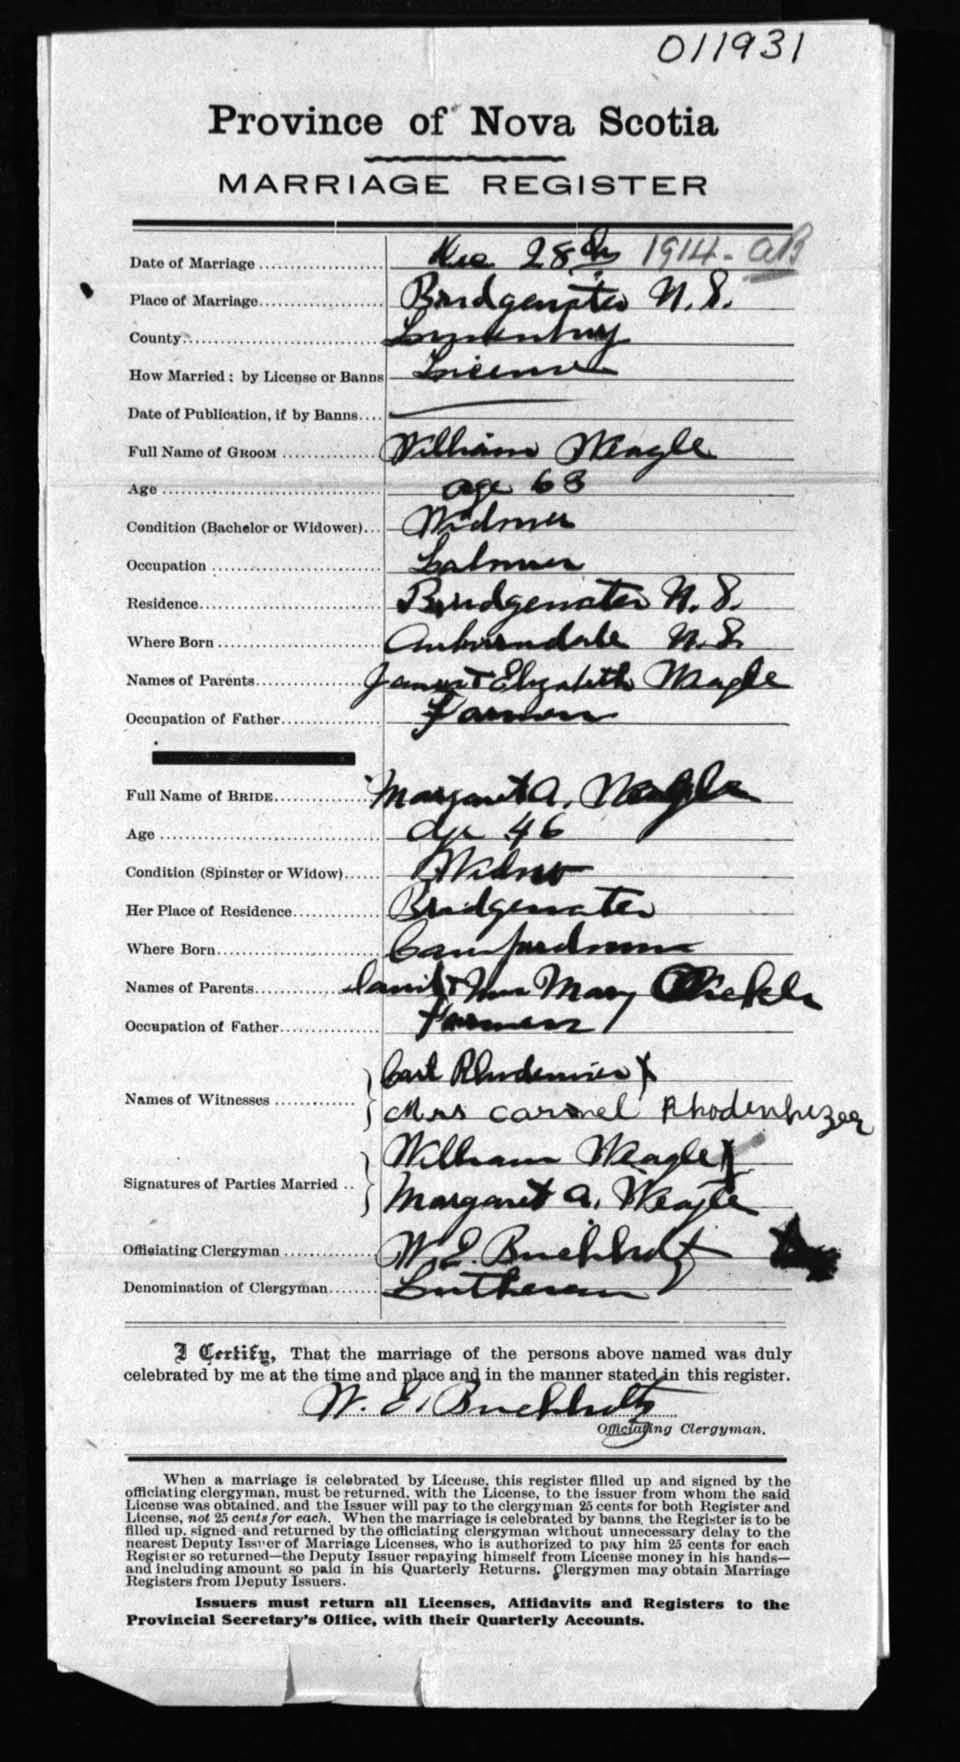 011931
Province of Nova Scotia
MARRIAGE REGISTER
Date of Marriage .................... Dec 28th 1914 - AB
Place of Marriage.................... Bridgewater N.S.
County.................... Lunenburg
How Married: by License or Banns License
Date of Publication, if by Banns....
Full Name of GROOM .............. William Weagle
Age .................... age 63
Condition (Bachelor or Widower)... Widower
Occupation .................... Labourer
Residence.................... Bridgewater N.S.
Where Born .................... Auburndale N.S.
Names of Parents.................... James + Elizabeth Weagle
Occupation of Father.............. Farmer
Full Name of BRIDE.............. Margaret A. Weagle
Age .................... age 46
Condition (Spinster or Widow)...... Widow
Her Place of Residence.............. Bridgewater
Where Born.................... Camperdown
Names of Parents.................... Mary
Occupation of Father.............. Farmer
Names of Witnesses ............ Carl x
Mrs Rhodenhizer
Signatures of Parties Married .. William Weagle x
Margaret A. Weagle
Officiating Clergyman .............. W. E. Buchholtz
Denomination of Clergyman........ Lutheran
I Certify, That the marriage of the persons above named was duly
celebrated by me at the time and place and in the manner stated in this register.
W. E. Buchholtz
Officiating Clergyman.
When a marriage is celebrated by License, this register filled up and signed by the
officiating clergyman, must be returned, with the License, to the issuer from whom the said
License was obtained, and the Issuer will pay to the clergyman 25 cents for both Register and
License, not 25 cents for each. When the marriage is celebrated by banns, the Register is to be
filled up, signed and returned by the officiating clergyman without unnecessary delay to the
nearest Deputy Issuer of Marriage Licenses, who is authorized to pay him 25 cents for each
Register so returned—the Deputy Issuer repaying himself from License money in his hands—
and including amount so paid in his Quarterly Returns. Clergymen may obtain Marriage
Registers from Deputy Issuers.
Issuers must return all Licenses, Affidavits and Registers to the
Provincial Secretary's Office, with their Quarterly Accounts.